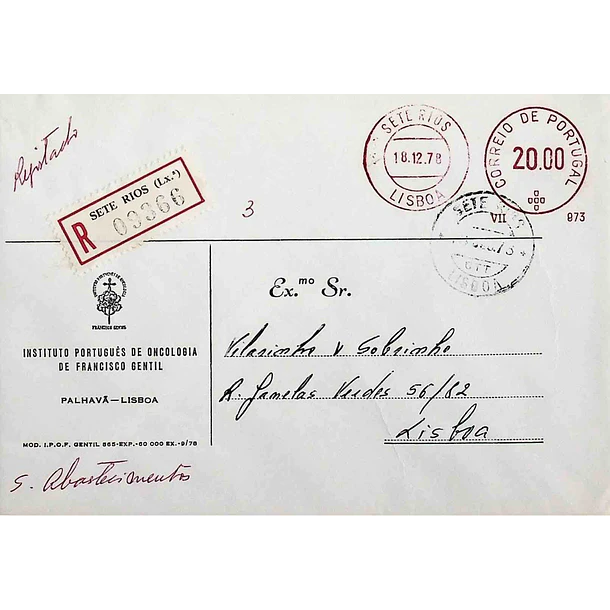 Registado
R
SETE RIOS (Lx.ª)
09366
3
SETE RIOS
18.12.78
LISBOA
CORREIO DE PORTUGAL
20.00
VII
873
SETE RIOS
CTT
LISBOA
FRANCISCO GENTIL
INSTITUTO PORTUGUÊS DE ONCOLOGIA
DE FRANCISCO GENTIL
PALHAVÃ—LISBOA
MOD. I.P.O.F. GENTIL 865-EXP.-60 000 EX.-9/78
Ex.mo Sr.
Vilarinho v Sobrinho
R. Janelas Verdes 56/82
Lisboa
S. Abastecimentos